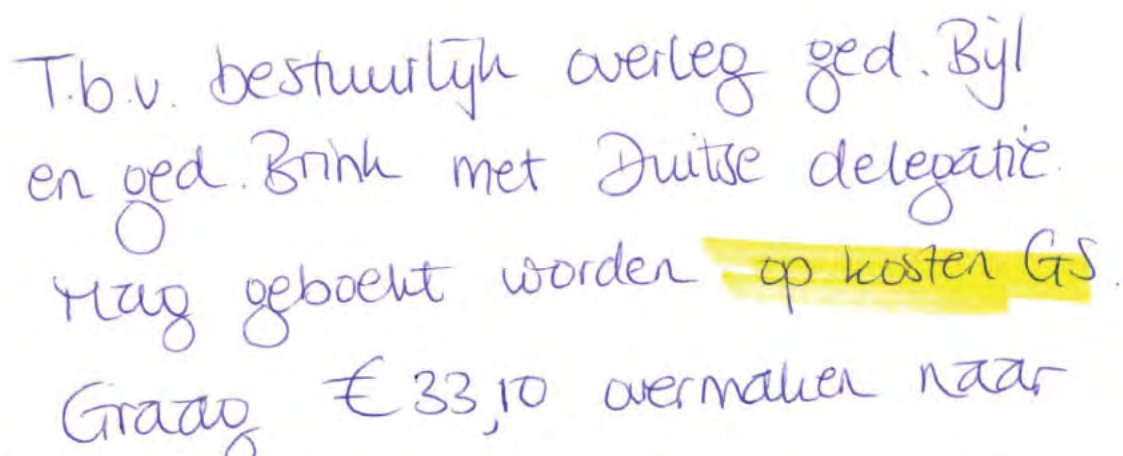 T.b.v. bestuurlijk overleg ged. Bijl
en ged. Brink met Duitse delegatie.
Mag geboekt worden op kosten GS.
Graag €33,10 overmaken naar